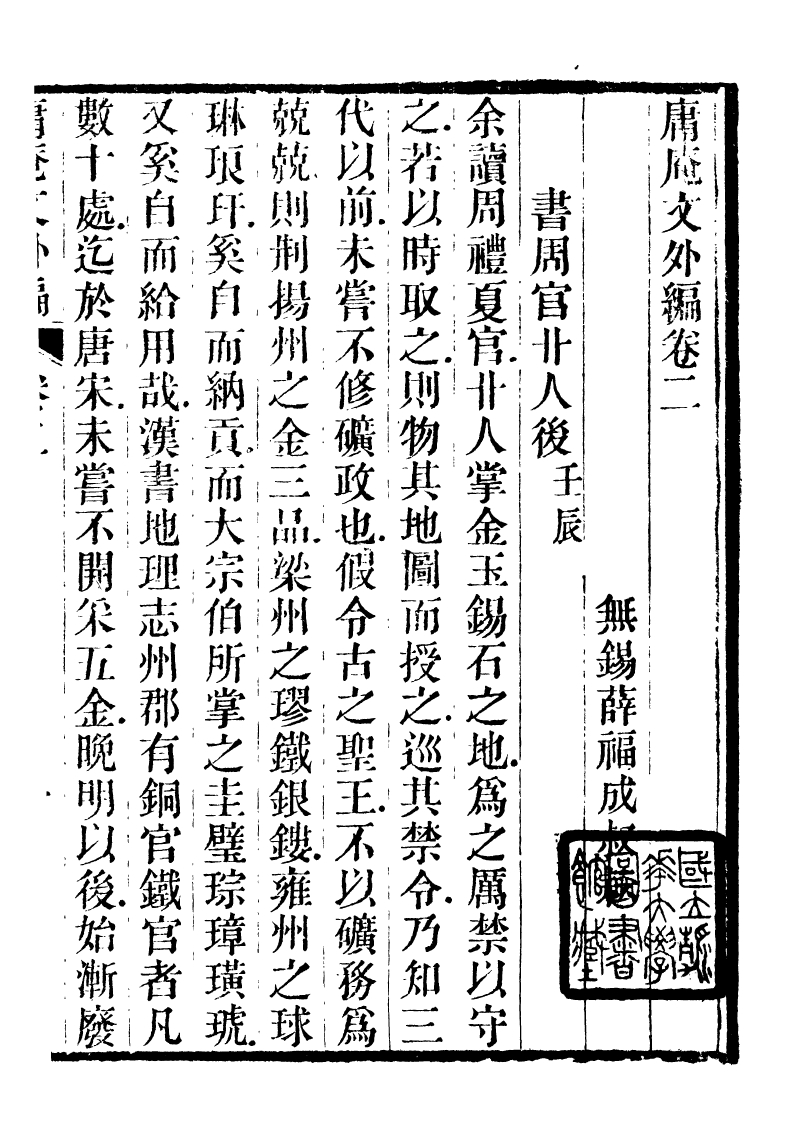 庸庵文外編卷二
無錫薛福成叔
書周官卝人後 壬辰
余讀周禮夏官。卝人掌金玉錫石之地。爲之厲禁以守
之。若以時取之。則物其地圖而授之。巡其禁令。乃知三
代以前。未嘗不修礦政也。假令古之聖王。不以礦務爲
兢兢。則荆揚州之金三品。梁州之璆鐵銀鏤。雍州之球
琳琅玕。奚自而納貢。而大宗伯所掌之圭璧琮璋璜琥。
又奚自而給用哉。漢書地理志州郡有銅官鐵官者凡
數十處。迄於唐宋。未嘗不開采五金。晚明以後。始漸廢
庸庵文外編 卷二
國立
華大學
圖書
館藏